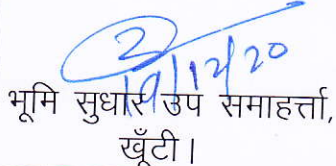 19/12/20
भूमि सुधार उप समाहर्त्ता,
खूँटी।